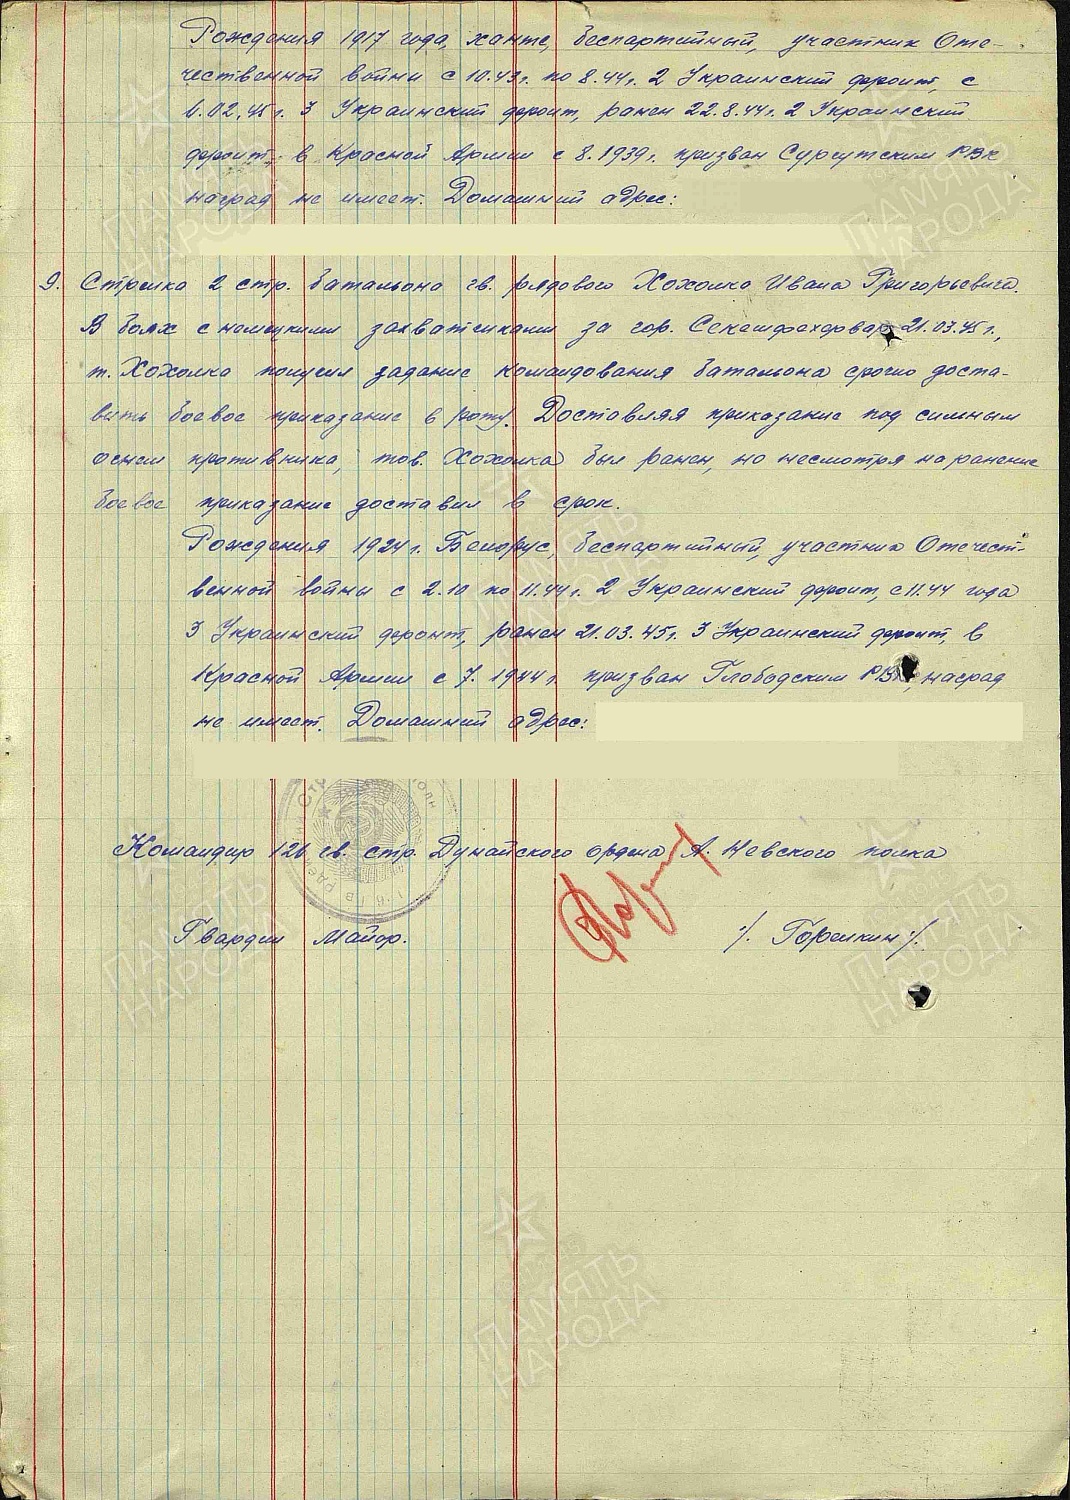 Рождения 1917 года, ханте, беспартийный, участник Оте-
чественной войны с 10.43г. по 8.44г. 2 Украинский фронт, с
02.45г. 3 Украинский фронт, ранен 22.8.44г. 2 Украинский
фронт, в Красной Армии с 8.1939г. призван Сургутским РВК
наград не имеет. Домашний адрес:
9. Стрелка 2 стр. батальона гв. рядового Хохолка Ивана Григорьевича.
В боях с немецкими захватчиками за гор. Секешфехервар 21.03.45г.,
т. Хохолка получил задание командования батальона срочно доста-
вить боевое приказание в роту. Доставляя приказание под сильным
огнем противника, тов. Хохолка был ранен, но несмотря на ранение
боевое приказание доставил в срок.
Рождения 1924г. Белорус, беспартийный, участник Отечест-
венной войны с 2.10 по 11.44г. 2 Украинский фронт, с 11.44 года
3 Украинский фронт, ранен 21.03.45г. 3 Украинский фронт, в
Красной Армии с 7.1944г. призван Глободским РВК, наград
не имеет. Домашний адрес:
Командир 126 гв. стр. Дунайского ордена А. Невского полка
Гвардии Майор.
/. Горелкин /.
ПАМЯТЬ
НАРОДА